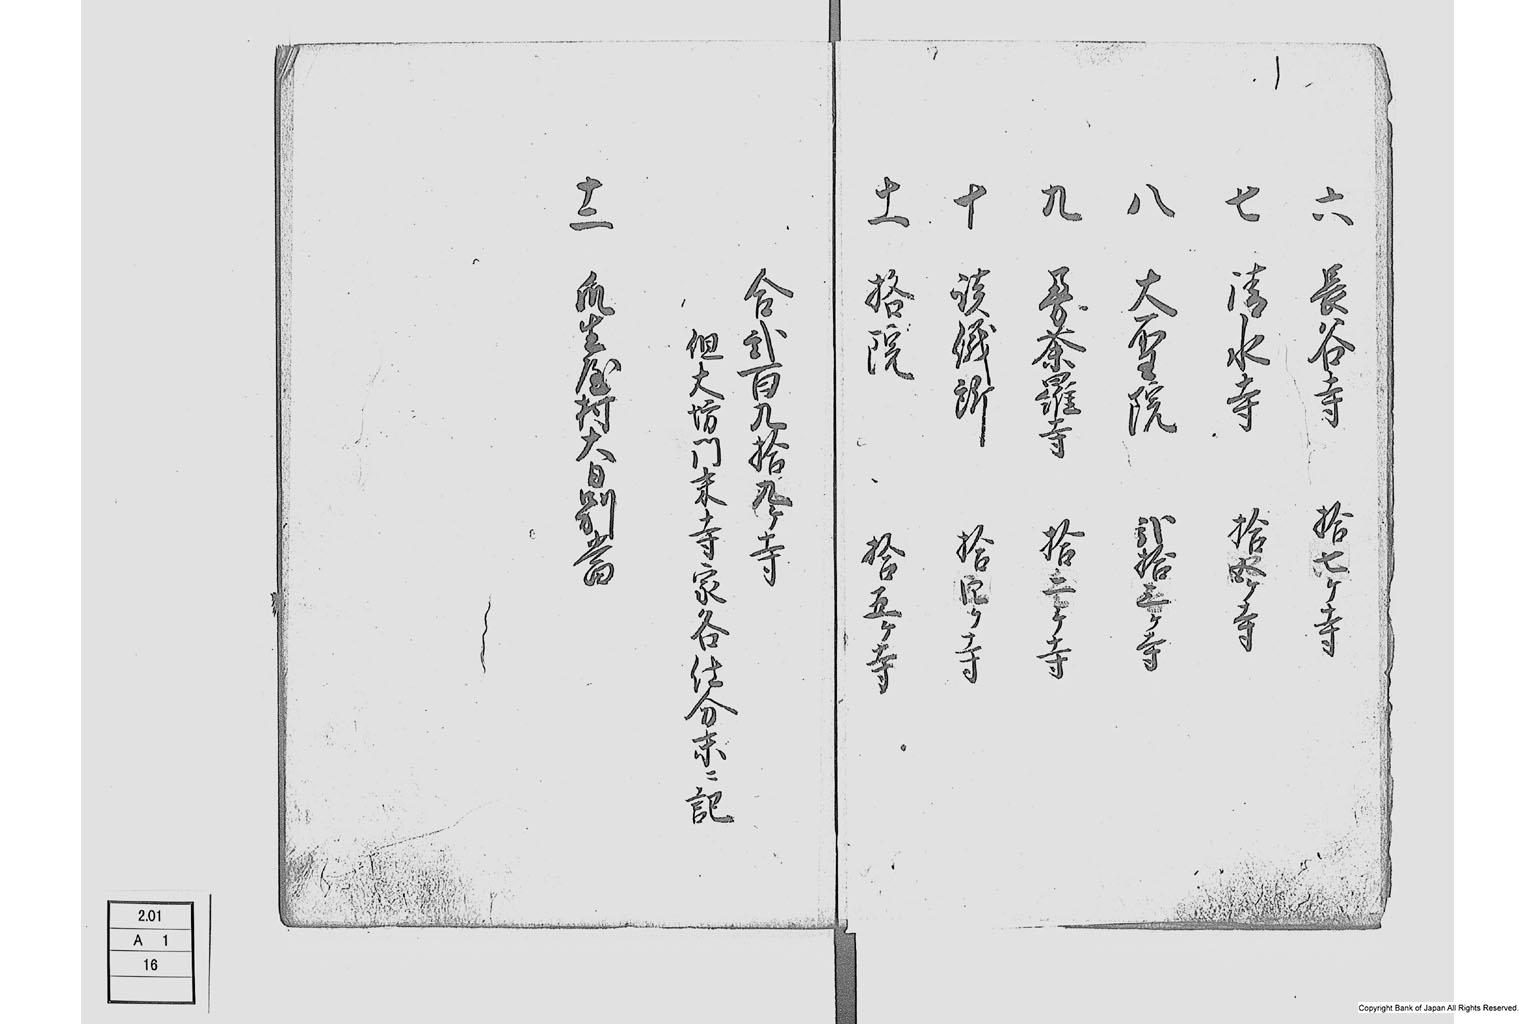 六 長谷寺 拾七ヶ寺
七 清水寺 拾四ヶ寺
八 大聖院 弐拾三ヶ寺
九 曼荼羅寺 拾二ヶ寺
十 談儀所 拾四ヶ寺
十一 拾院 拾五ヶ寺
合弐百九拾九ヶ寺
但大坊門末寺家各仕分末ニ記
十二 瓜生屋村大日別当
2.01
A 1
16
Copyright Bank of Japan All Rights Reserved.